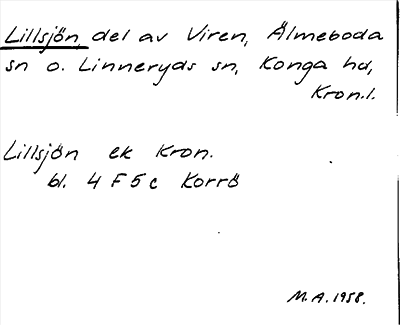 Lillsjön, del av Viren, Älmeboda
sn o. Linneryds sn, Konga hd,
Kron.l.
Lillsjön ek Kron.
bl. 4 F 5 c Korrö
M.A. 1958.